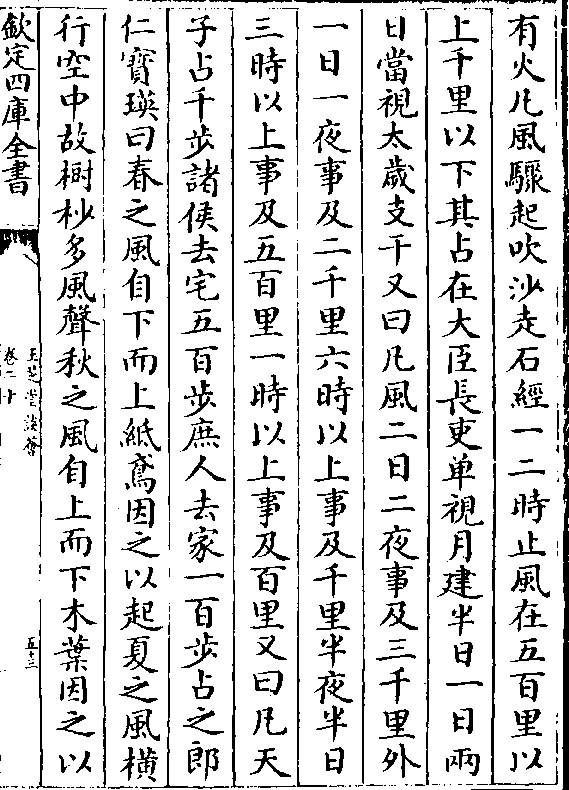 有火凡風驟起吹沙走石經一二時止風在五百里以
上千里以下其占在大臣長吏单視月建半日一日兩
日當視太歲支干又曰凡風二日二夜事及三千里外
一日一夜事及二千里六時以上事及千里半夜半日
三時以上事及五百里一時以上事及百里又曰凡天
子占千步諸侯去宅五百步庶人去家一百步占之郎
仁寶瑛曰春之風自下而上紙鳶因之以起夏之風橫
行空中故樹杪多風聲秋之風自上而下木葉因之以
欽定四庫全書
玉芝堂談薈
卷二十
五十三